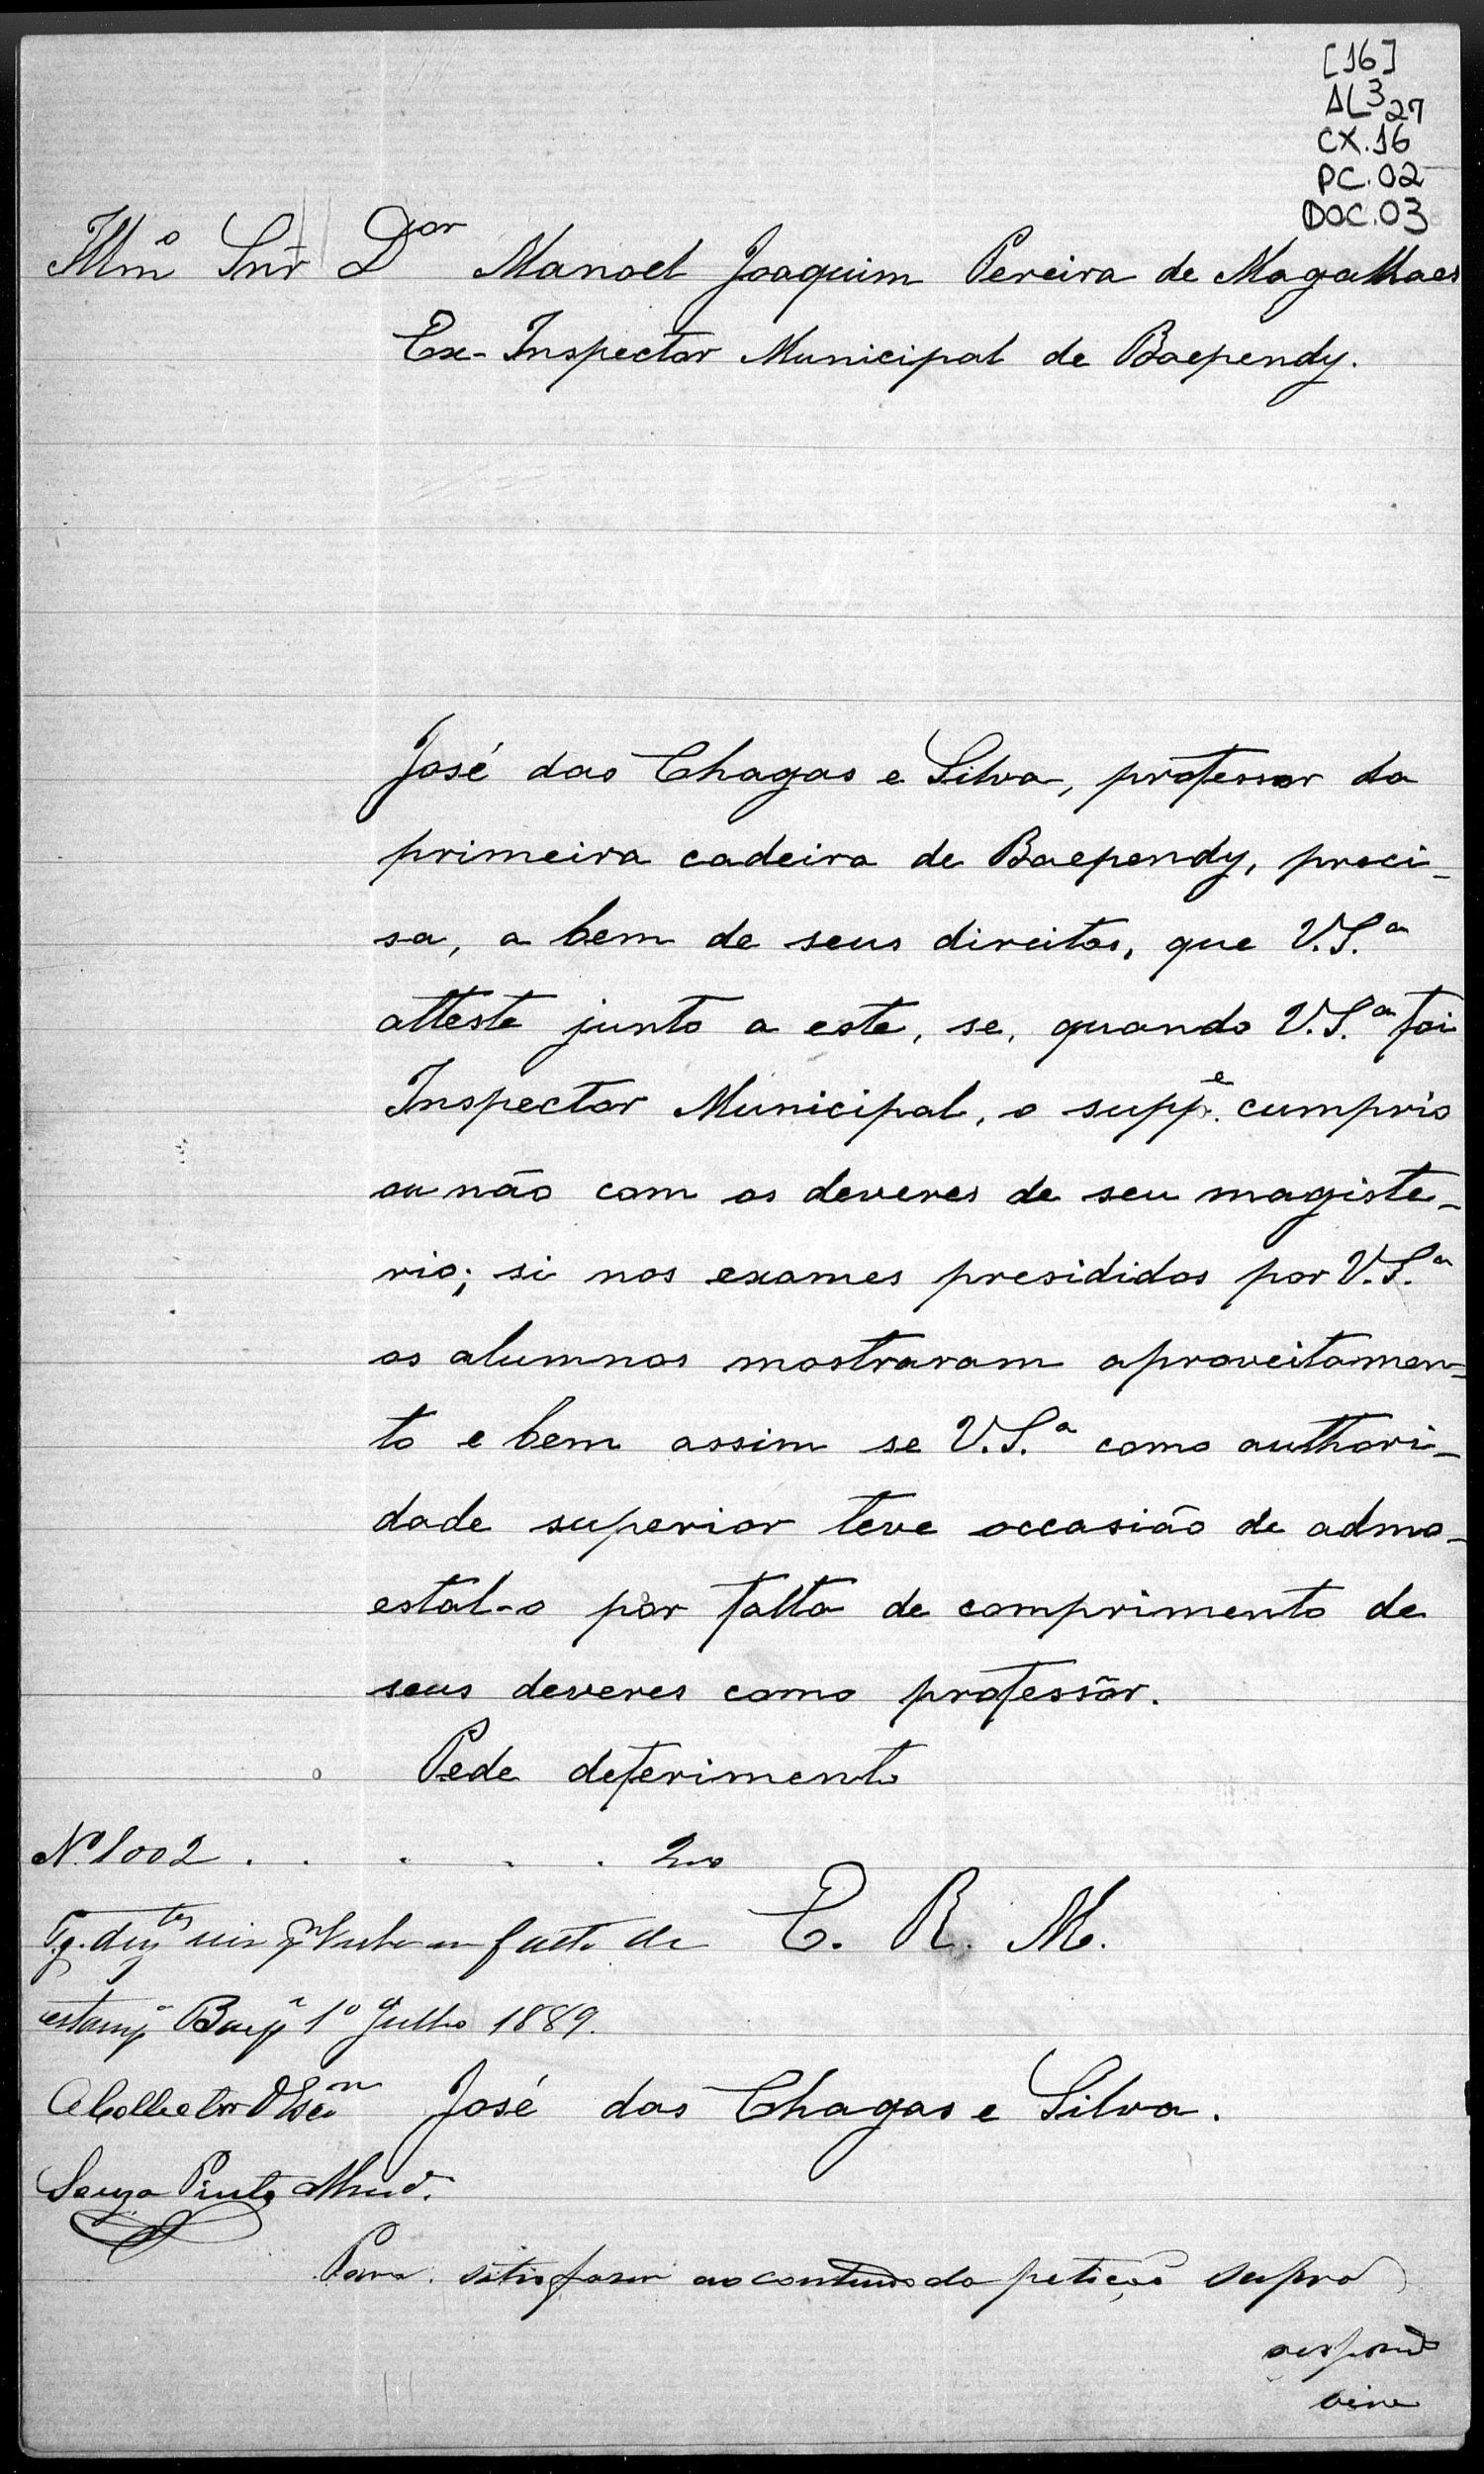 [16]
AL3 27
CX.16
PC.02
DOC.03
Illmº Snr Dor Manoel Joaquim Pereira de Magalhaes
Ex-Inspector Municipal de Baependy.
José das Chagas e Silva, professor da
primeira cadeira de Baependy, preci-
sa, a bem de seus direitos, que V.S.ª
atteste junto a este, se, quando V.S.ª foi
Inspector Municipal, o suppe. cumprio
ou não com os deveres de seu magiste-
rio; si nos exames presididos por V.S.ª
os alumnos mostraram aproveitamen=
to e bem assim se V.S.ª como authori-
dade superior teve occasião de admo-
estal-o por falta de comprimento de
seus deveres como professôr.
Pede deferimento
Nº 1002 . . . . . 200
Pg. duztos reis falta de
E. R. M.
1º Julho 1889.
O Collector O Escm
José das Chagas e Silva.
Souza Pinto
Para satisfaser ao contiudo da petição supra
respond